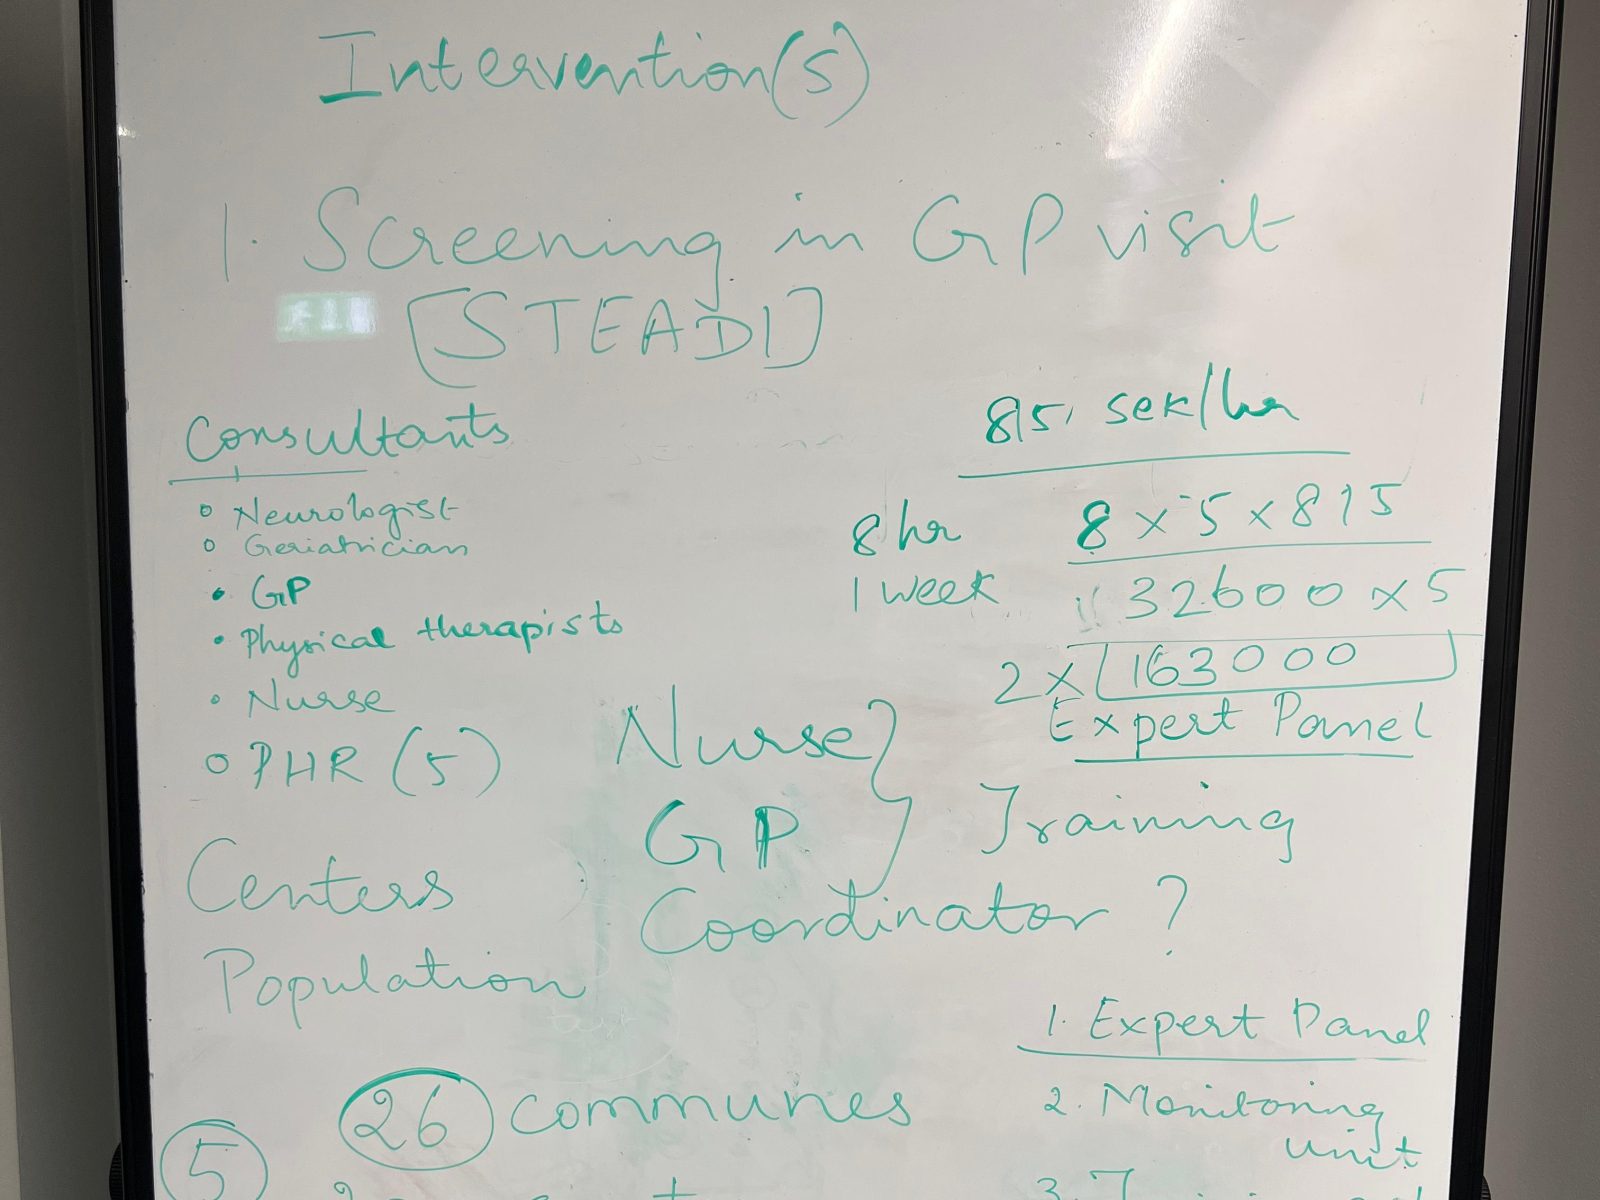 Intervention(s)
1. Screening in GP visit
[STEADI]
Consultants
Neurologist
Geriatrician
GP
Physical therapists
Nurse
PHR (5)
815, sek/hr
8 hr 8 x 5 x 815
1 week 32600 x 5
2 x [163000]
Expert Panel
Nurse
GP } Training
Coordinator ?
Centers
Population
1. Expert Panel
2. Monitoring
unit
26 communes
5
3.